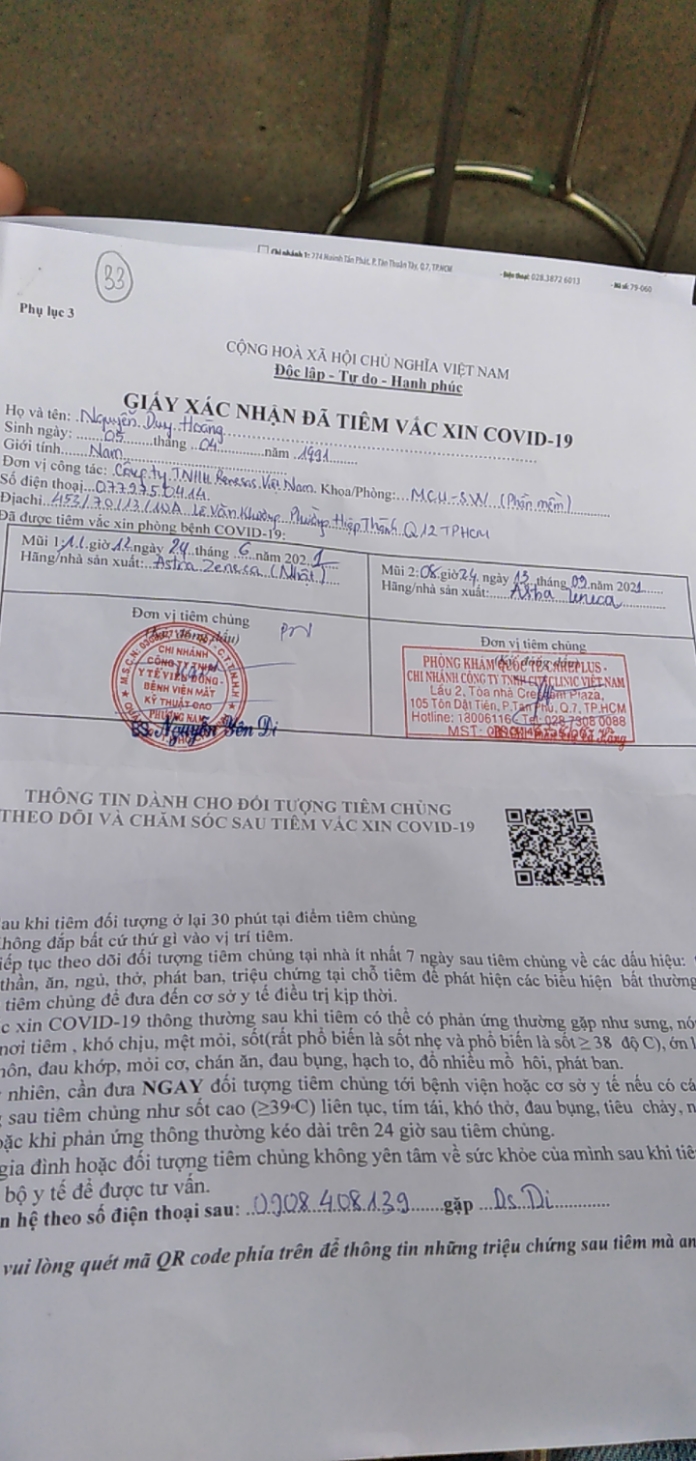 Chi nhánh 1: 724 Huỳnh Tấn Phát, P. Tân Thuận Tây, Q.7, TPHCM - Điện thoại: 028.3872 6013 - Mã số: 79-060
33
Phụ lục 3
CỘNG HOÀ XÃ HỘI CHỦ NGHĨA VIỆT NAM
Độc lập - Tự do - Hạnh phúc
GIẤY XÁC NHẬN ĐÃ TIÊM VẮC XIN COVID-19
Họ và tên: Nguyễn Duy Hoàng
Sinh ngày: 05 tháng 04 năm 1991
Giới tính Nam
Đơn vị công tác: Công ty TNHH Renesas Việt Nam. Khoa/Phòng: MCU-SW (Phần mềm)
Số điện thoại 0772750414
Địa chỉ 453/70/13/10A Lê Văn Khương Phường Hiệp Thành Q12 TPHCM
Đã được tiêm vắc xin phòng bệnh COVID-19:
Mũi 1: giờ ngày 24 tháng 6 năm 2021
Hãng/nhà sản xuất: Astra Zeneca (Nhật)
Mũi 2: 08 giờ 24 ngày 13 tháng 09 năm 2021
Hãng/nhà sản xuất: Astra Zeneca
Đơn vị tiêm chủng
CHI NHÁNH
CÔNG TY TNHH
Y TẾ VIỄN ĐÔNG -
BỆNH VIỆN MẮT
KỸ THUẬT CAO
PHƯƠNG NAM
BS. Nguyễn Yên Di
Đơn vị tiêm chủng
PHÒNG KHÁM QUỐC TẾ CAREPLUS -
CHI NHÁNH CÔNG TY TNHH CITYCLINIC VIỆT NAM
Lầu 2, Tòa nhà Crescent Plaza,
105 Tôn Dật Tiên, P.Tân Phú, Q.7, TP.HCM
Hotline: 18006116 - Tel: 028 7308 0088
MST:
THÔNG TIN DÀNH CHO ĐỐI TƯỢNG TIÊM CHỦNG
THEO DÕI VÀ CHĂM SÓC SAU TIÊM VẮC XIN COVID-19
au khi tiêm đối tượng ở lại 30 phút tại điểm tiêm chủng
hông đắp bất cứ thứ gì vào vị trí tiêm.
iếp tục theo dõi đối tượng tiêm chủng tại nhà ít nhất 7 ngày sau tiêm chủng về các dấu hiệu:
thần, ăn, ngủ, thở, phát ban, triệu chứng tại chỗ tiêm để phát hiện các biểu hiện bất thường
tiêm chủng để đưa đến cơ sở y tế điều trị kịp thời.
c xin COVID-19 thông thường sau khi tiêm có thể có phản ứng thường gặp như sưng, nó
nơi tiêm , khó chịu, mệt mỏi, sốt(rất phổ biến là sốt nhẹ và phổ biến là sốt ≥ 38 độ C), ớn l
nôn, đau khớp, mỏi cơ, chán ăn, đau bụng, hạch to, đổ nhiều mồ hôi, phát ban.
nhiên, cần đưa NGAY đối tượng tiêm chủng tới bệnh viện hoặc cơ sở y tế nếu có cá
sau tiêm chủng như sốt cao (≥39◦C) liên tục, tím tái, khó thở, đau bụng, tiêu chảy, n
oặc khi phản ứng thông thường kéo dài trên 24 giờ sau tiêm chủng.
gia đình hoặc đối tượng tiêm chủng không yên tâm về sức khỏe của mình sau khi tiê
bộ y tế để được tư vấn.
n hệ theo số điện thoại sau: 0908 408 139 gặp Ds Di
vui lòng quét mã QR code phía trên để thông tin những triệu chứng sau tiêm mà an